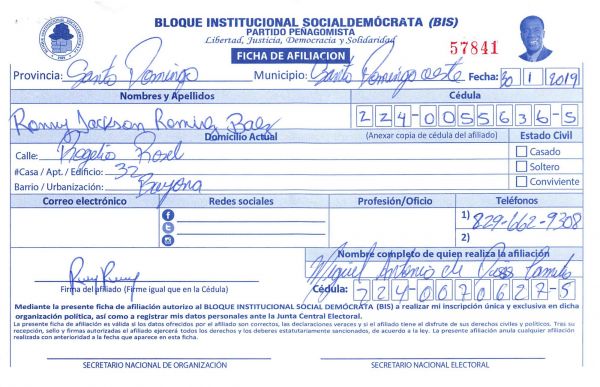 BLOQUE INSTITUCIONAL SOCIALDEMÓCRATA (BIS)
PARTIDO PEÑAGOMISTA
Libertad, Justicia, Democracia y Solidaridad
57841
FICHA DE AFILIACION
Provincia: Santo Domingo Municipio: Santo Domingo oeste Fecha: 20 / 1 / 2019
Nombres y Apellidos Cédula
Ronny Jackson Ramirez Baez 224-0055636-5
Domicilio Actual (Anexar copia de cédula del afiliado) Estado Civil
Calle: Rogelio Rosel Casado
#Casa / Apt. / Edificio: 32 Soltero
Barrio / Urbanización: Bayona Conviviente
Correo electrónico Redes sociales Profesión/Oficio Teléfonos
1) 829-662-9308
2)
Nombre completo de quien realiza la afiliación
Miguel Antonio de Camilo
Firma del afiliado (Firme igual que en la Cédula) Cédula: 224-0070627-5
Mediante la presente ficha de afiliación autorizo al BLOQUE INSTITUCIONAL SOCIAL DEMÓCRATA (BIS) a realizar mi inscripción única y exclusiva en dicha
organización política, así como a registrar mis datos personales ante la Junta Central Electoral.
La presente ficha de afiliación es válida si los datos ofrecidos por el afiliado son correctos, las declaraciones veraces y si el afiliado tiene el disfrute de sus derechos civiles y políticos. Tras su
recepción, sello y firmas autorizadas el afiliado ejercerá todos los derechos y los deberes estatutariamente sancionados, de acuerdo a la ley. La presente afiliación anula cualquier afiliación
realizada con anterioridad a la fecha que aparece en esta ficha.
SECRETARIO NACIONAL DE ORGANIZACIÓN SECRETARIO NACIONAL ELECTORAL